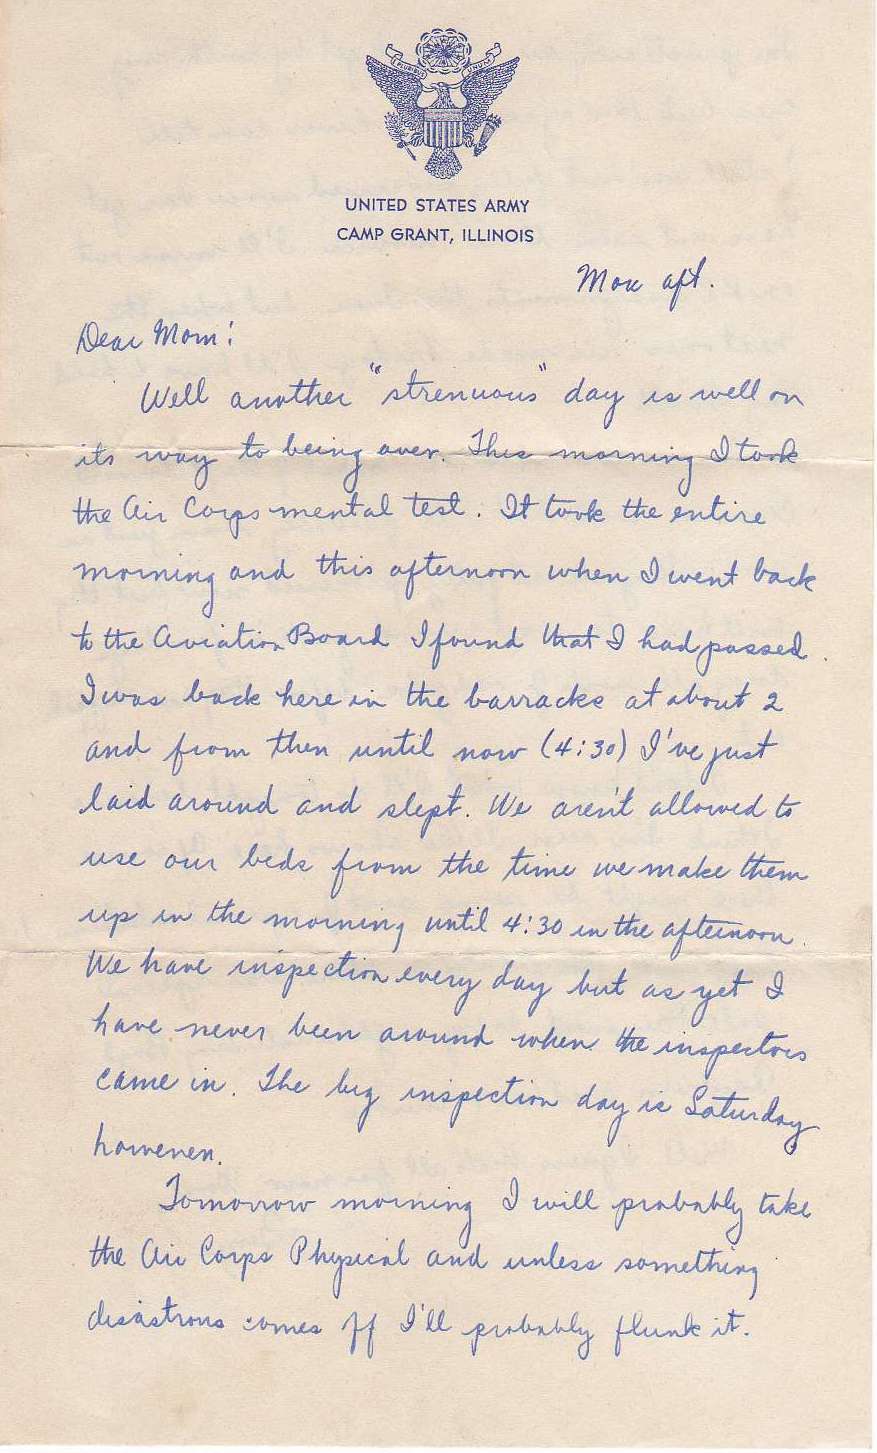 UNITED STATES ARMY
CAMP GRANT, ILLINOIS
Mon aft.
Dear Mom:
Well another "strenuous" day is well on
its way to being over. This morning I took
the Air Corps mental test. It took the entire
morning and this afternoon when I went back
to the Aviation Board I found that I had passed.
I was back here in the barracks at about 2
and from then until now (4:30) I've just
laid around and slept. We aren't allowed to
use our beds from the time we make them
up in the morning until 4:30 in the afternoon.
We have inspection every day but as yet I
have never been around when the inspectors
came in. The big inspection day is Saturday
however.
Tomorrow morning I will probably take
the Air Corps Physical and unless something
disastrous comes off I'll probably flunk it.